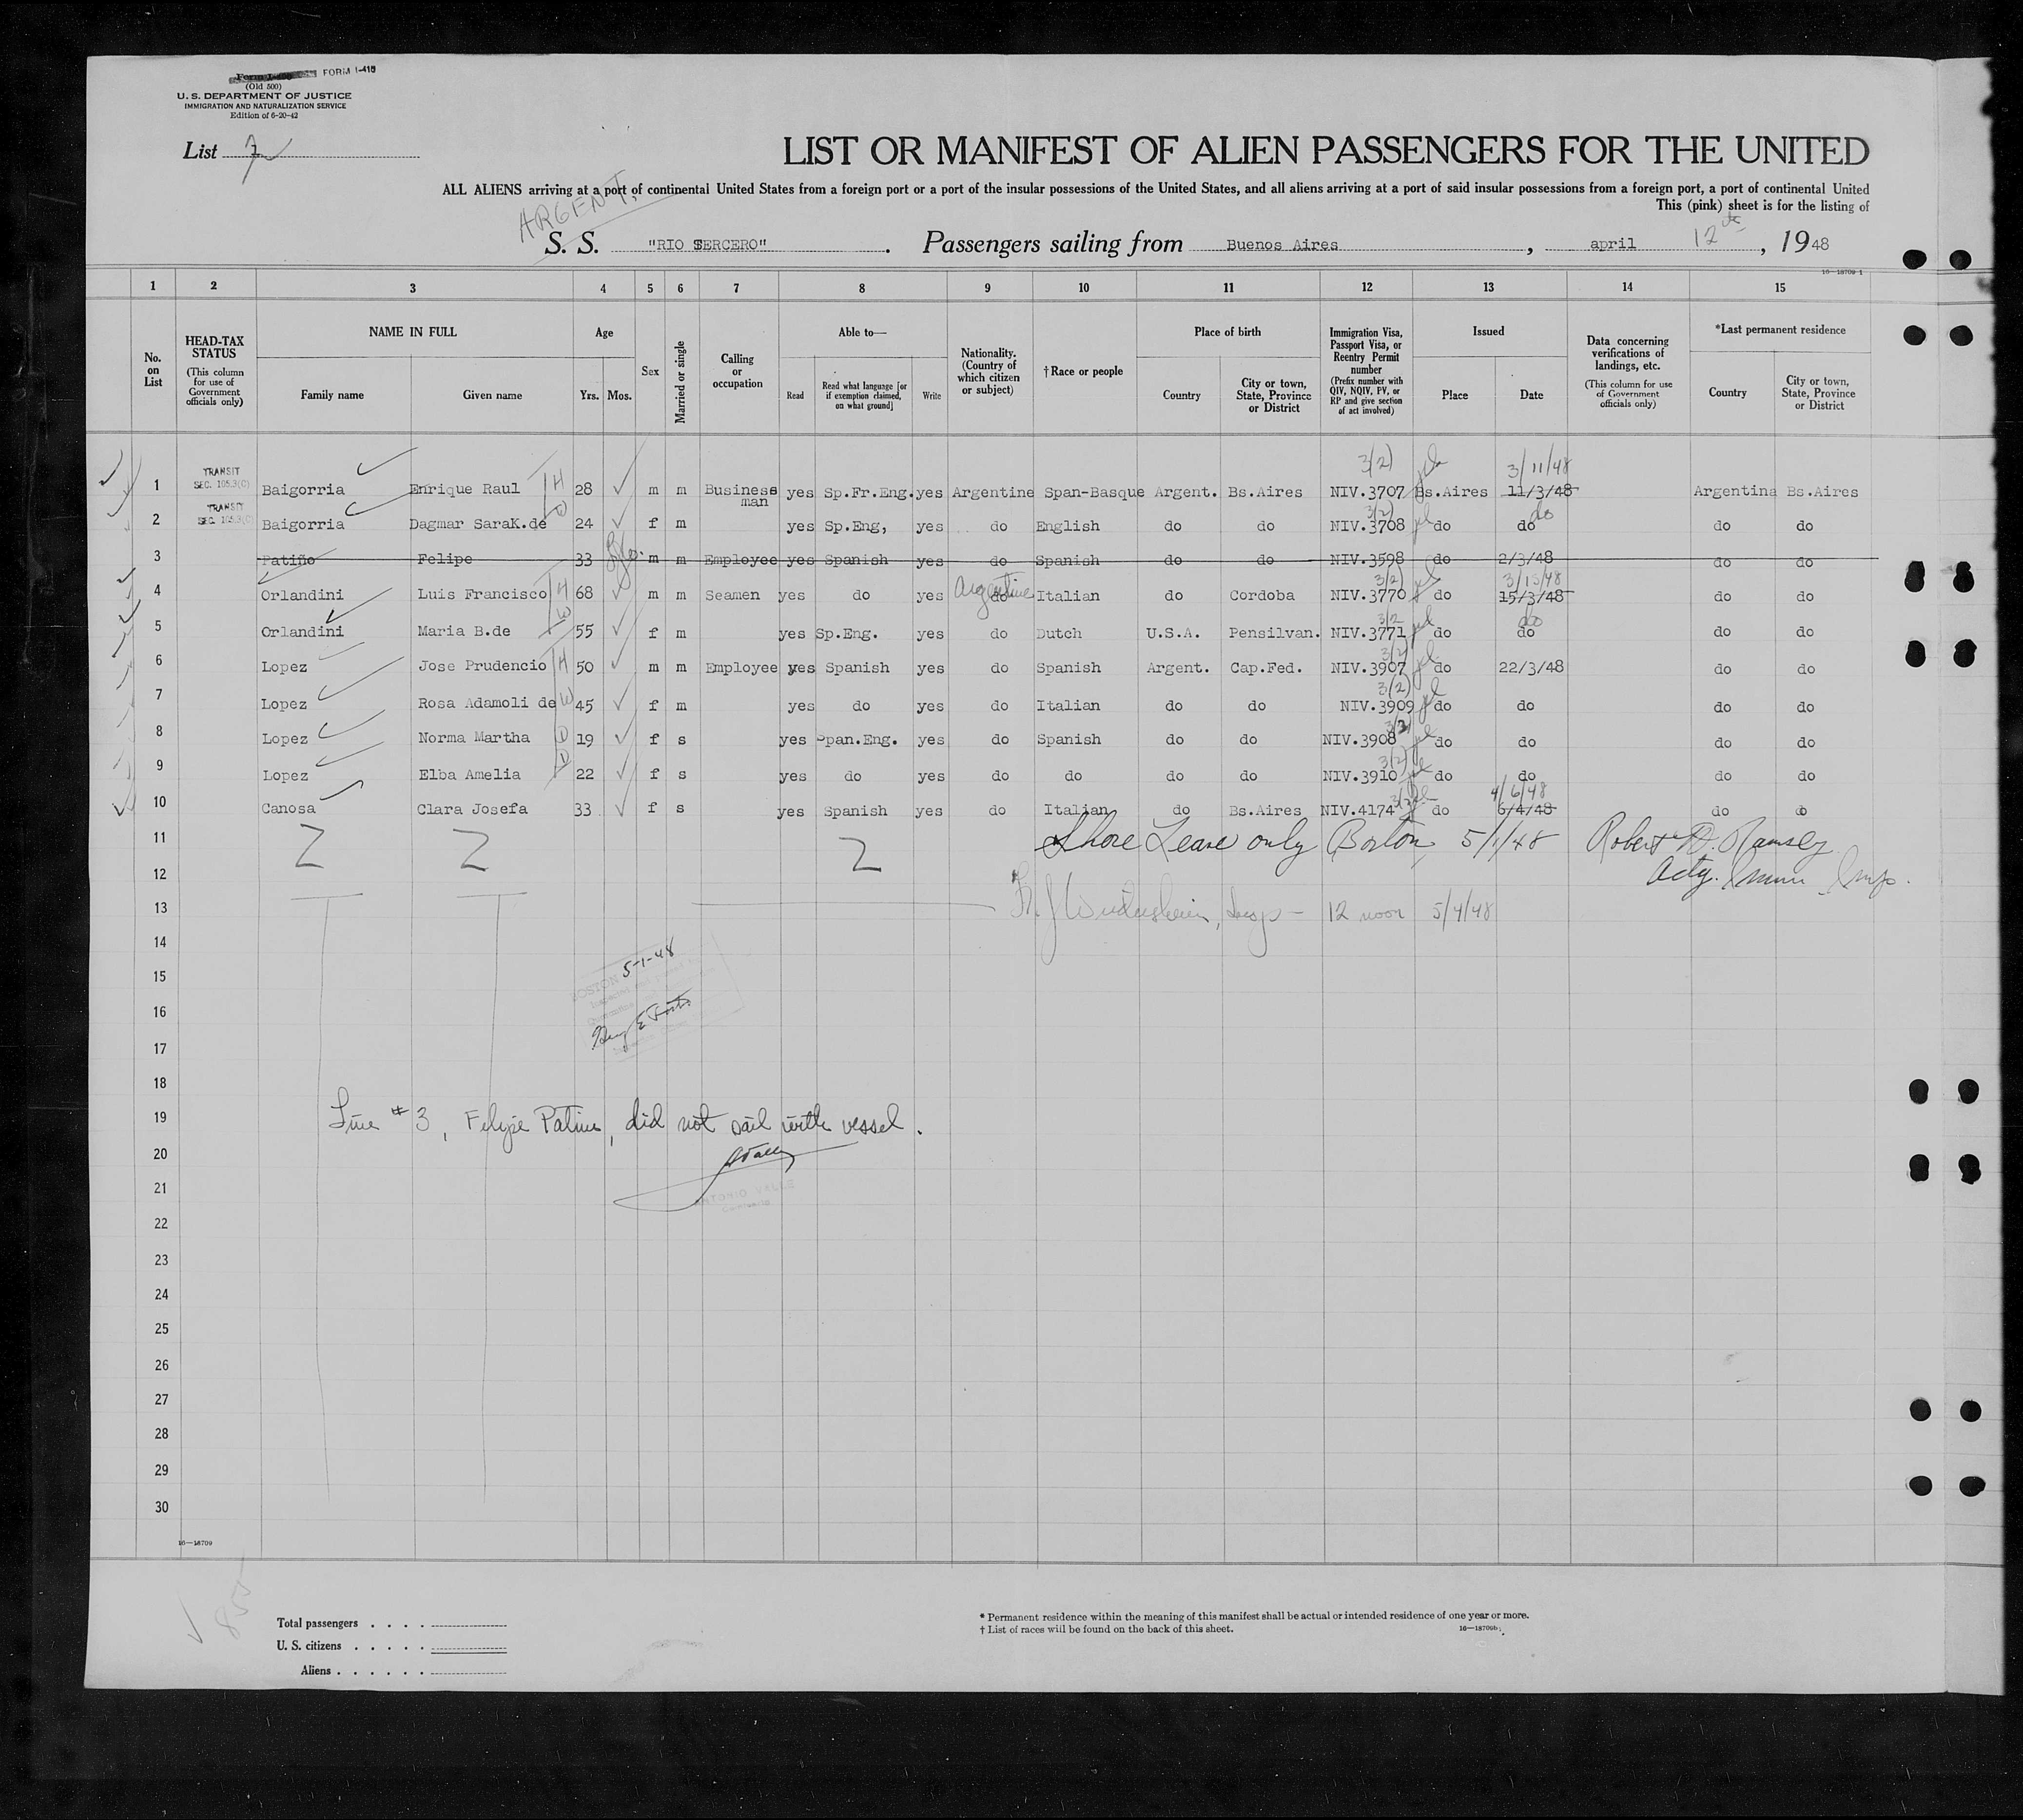 FORM I-415
(Old 500)
U. S. DEPARTMENT OF JUSTICE
IMMIGRATION AND NATURALIZATION SERVICE
Edition of 6-20-42
List
LIST OR MANIFEST OF ALIEN PASSENGERS FOR THE UNITED
ALL ALIENS arriving at a port of continental United States from a foreign port or a port of the insular possessions of the United States, and all aliens arriving at a port of said insular possessions from a foreign port, a port of continental United
This (pink) sheet is for the listing of
ARGENT.
S. S. "RIO TERCERO". Passengers sailing from Buenos Aires, april 12th, 1948
16—18709-1
1 2 3 4 5 6 7 8 9 10 11 12 13 14 15
No. on List
HEAD-TAX STATUS (This column for use of Government officials only)
NAME IN FULL Family name Given name
Age Yrs. Mos.
Sex
Married or single
Calling or occupation
Able to— Read Read what language [or if exemption claimed, on what ground] Write
Nationality. (Country of which citizen or subject)
†Race or people
Place of birth Country City or town, State, Province or District
Immigration Visa, Passport Visa, or Reentry Permit number (Prefix number with QIV, NQIV, PV, or RP and give section of act involved)
Issued Place Date
Data concerning verifications of landings, etc. (This column for use of Government officials only)
*Last permanent residence Country City or town, State, Province or District
3(2) 3/11/48
1 TRANSIT SEC. 105.3(C) Baigorria Enrique Raul H 28 m m Business man yes Sp.Fr.Eng. yes Argentine Span-Basque Argent. Bs.Aires NIV.3707 Bs.Aires 11/3/48 Argentina Bs.Aires
2 TRANSIT SEC. 105.3(C) Baigorria Dagmar SaraK.de W 24 f m yes Sp.Eng, yes do English do do 3(2) NIV.3708 do do do do do
3 Patiño Felipe 33 m m Employee yes Spanish yes do Spanish do do NIV.3598 do 2/3/48 do do
4 Orlandini Luis Francisco H 68 m m Seamen yes do yes Argentine do Italian do Cordoba 3(2) NIV.3770 do 3/15/48 15/3/48 do do
5 Orlandini Maria B.de W 55 f m yes Sp.Eng. yes do Dutch U.S.A. Pensilvan. 3/2 NIV.3771 do do do do do
6 Lopez Jose Prudencio H 50 m m Employee yes Spanish yes do Spanish Argent. Cap.Fed. 3(2) NIV.3907 do 22/3/48 do do
7 Lopez Rosa Adamoli de W 45 f m yes do yes do Italian do do 3(2) NIV.3909 do do do do
8 Lopez Norma Martha D 19 f s yes Span.Eng. yes do Spanish do do NIV.3908 do do do do
9 Lopez Elba Amelia D 22 f s yes do yes do do do do 3(2) NIV.3910 do do do do
10 Canosa Clara Josefa 33 f s yes Spanish yes do Italian do Bs.Aires NIV.4174 do 4/6/48 6/4/48 do do
11 Shore Leave only Boston 5/1/48 Robert D. Ramsey
12 Actg. Immi Insp.
13 Insp— 12 noon 5/4/48
14
15 BOSTON 5-1-48
16
17
18
19 Line #3, Felipe Patino, did not sail with vessel.
20
21 ANTONIO VALLE
22
23
24
25
26
27
28
29
30
16—18709
855
Total passengers . . . .
U. S. citizens . . . . .
Aliens . . . . . .
* Permanent residence within the meaning of this manifest shall be actual or intended residence of one year or more.
† List of races will be found on the back of this sheet.
16—18709b